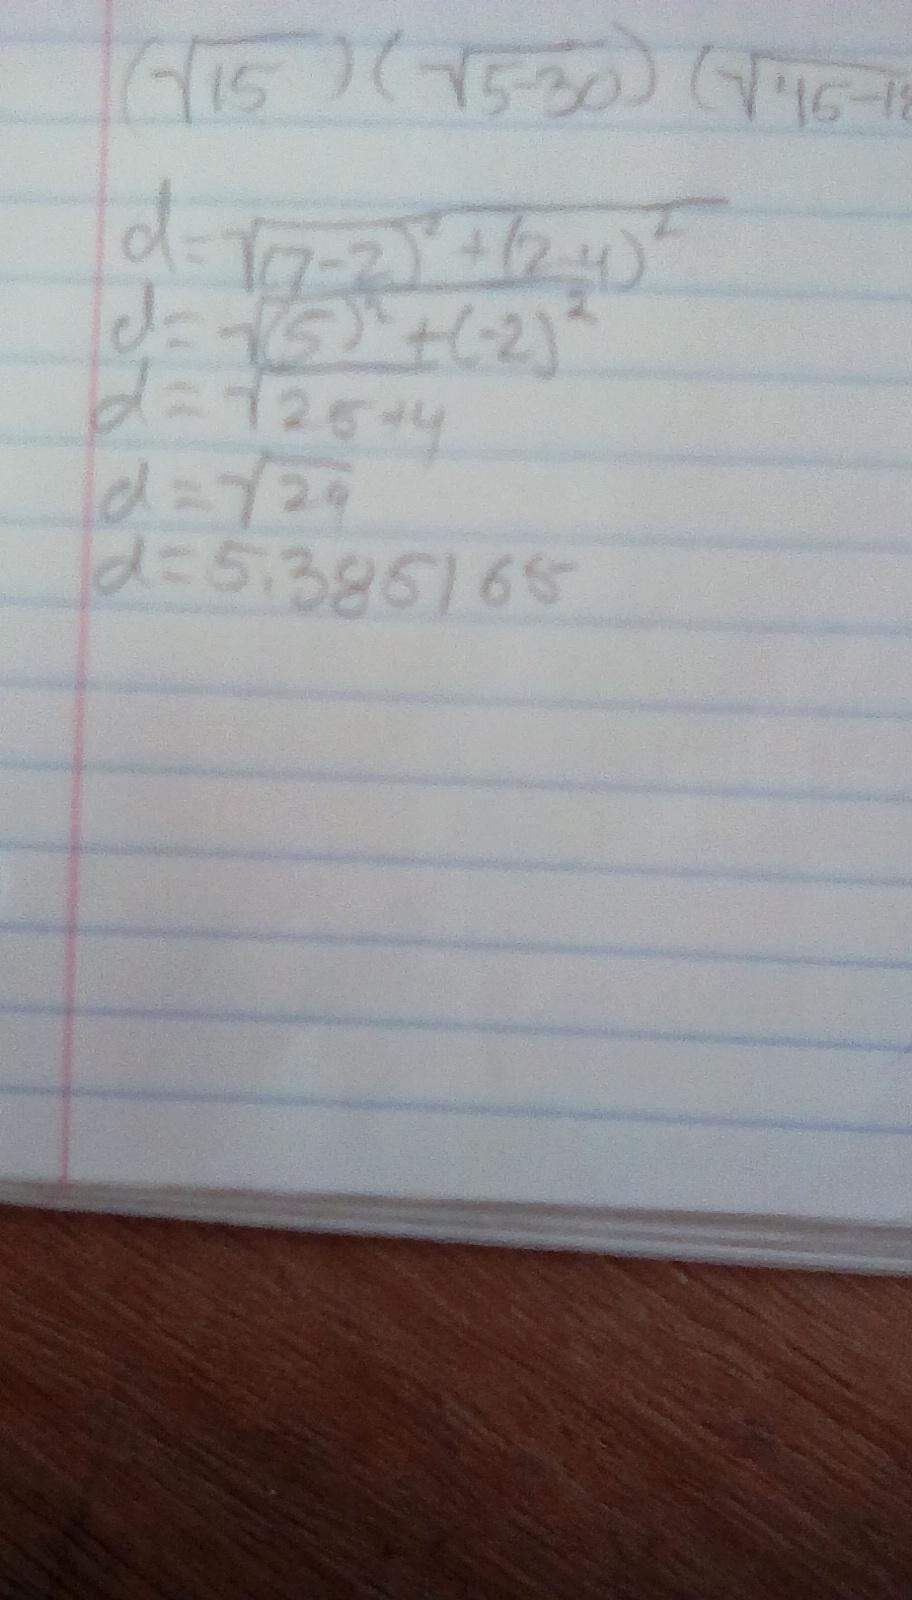 (√15 ) ( √5-30) (√15-18
d=√(7-2)² +(2-4)²
d= √(5)² +(-2)²
d = √25+4
d =√29
d=5.385165